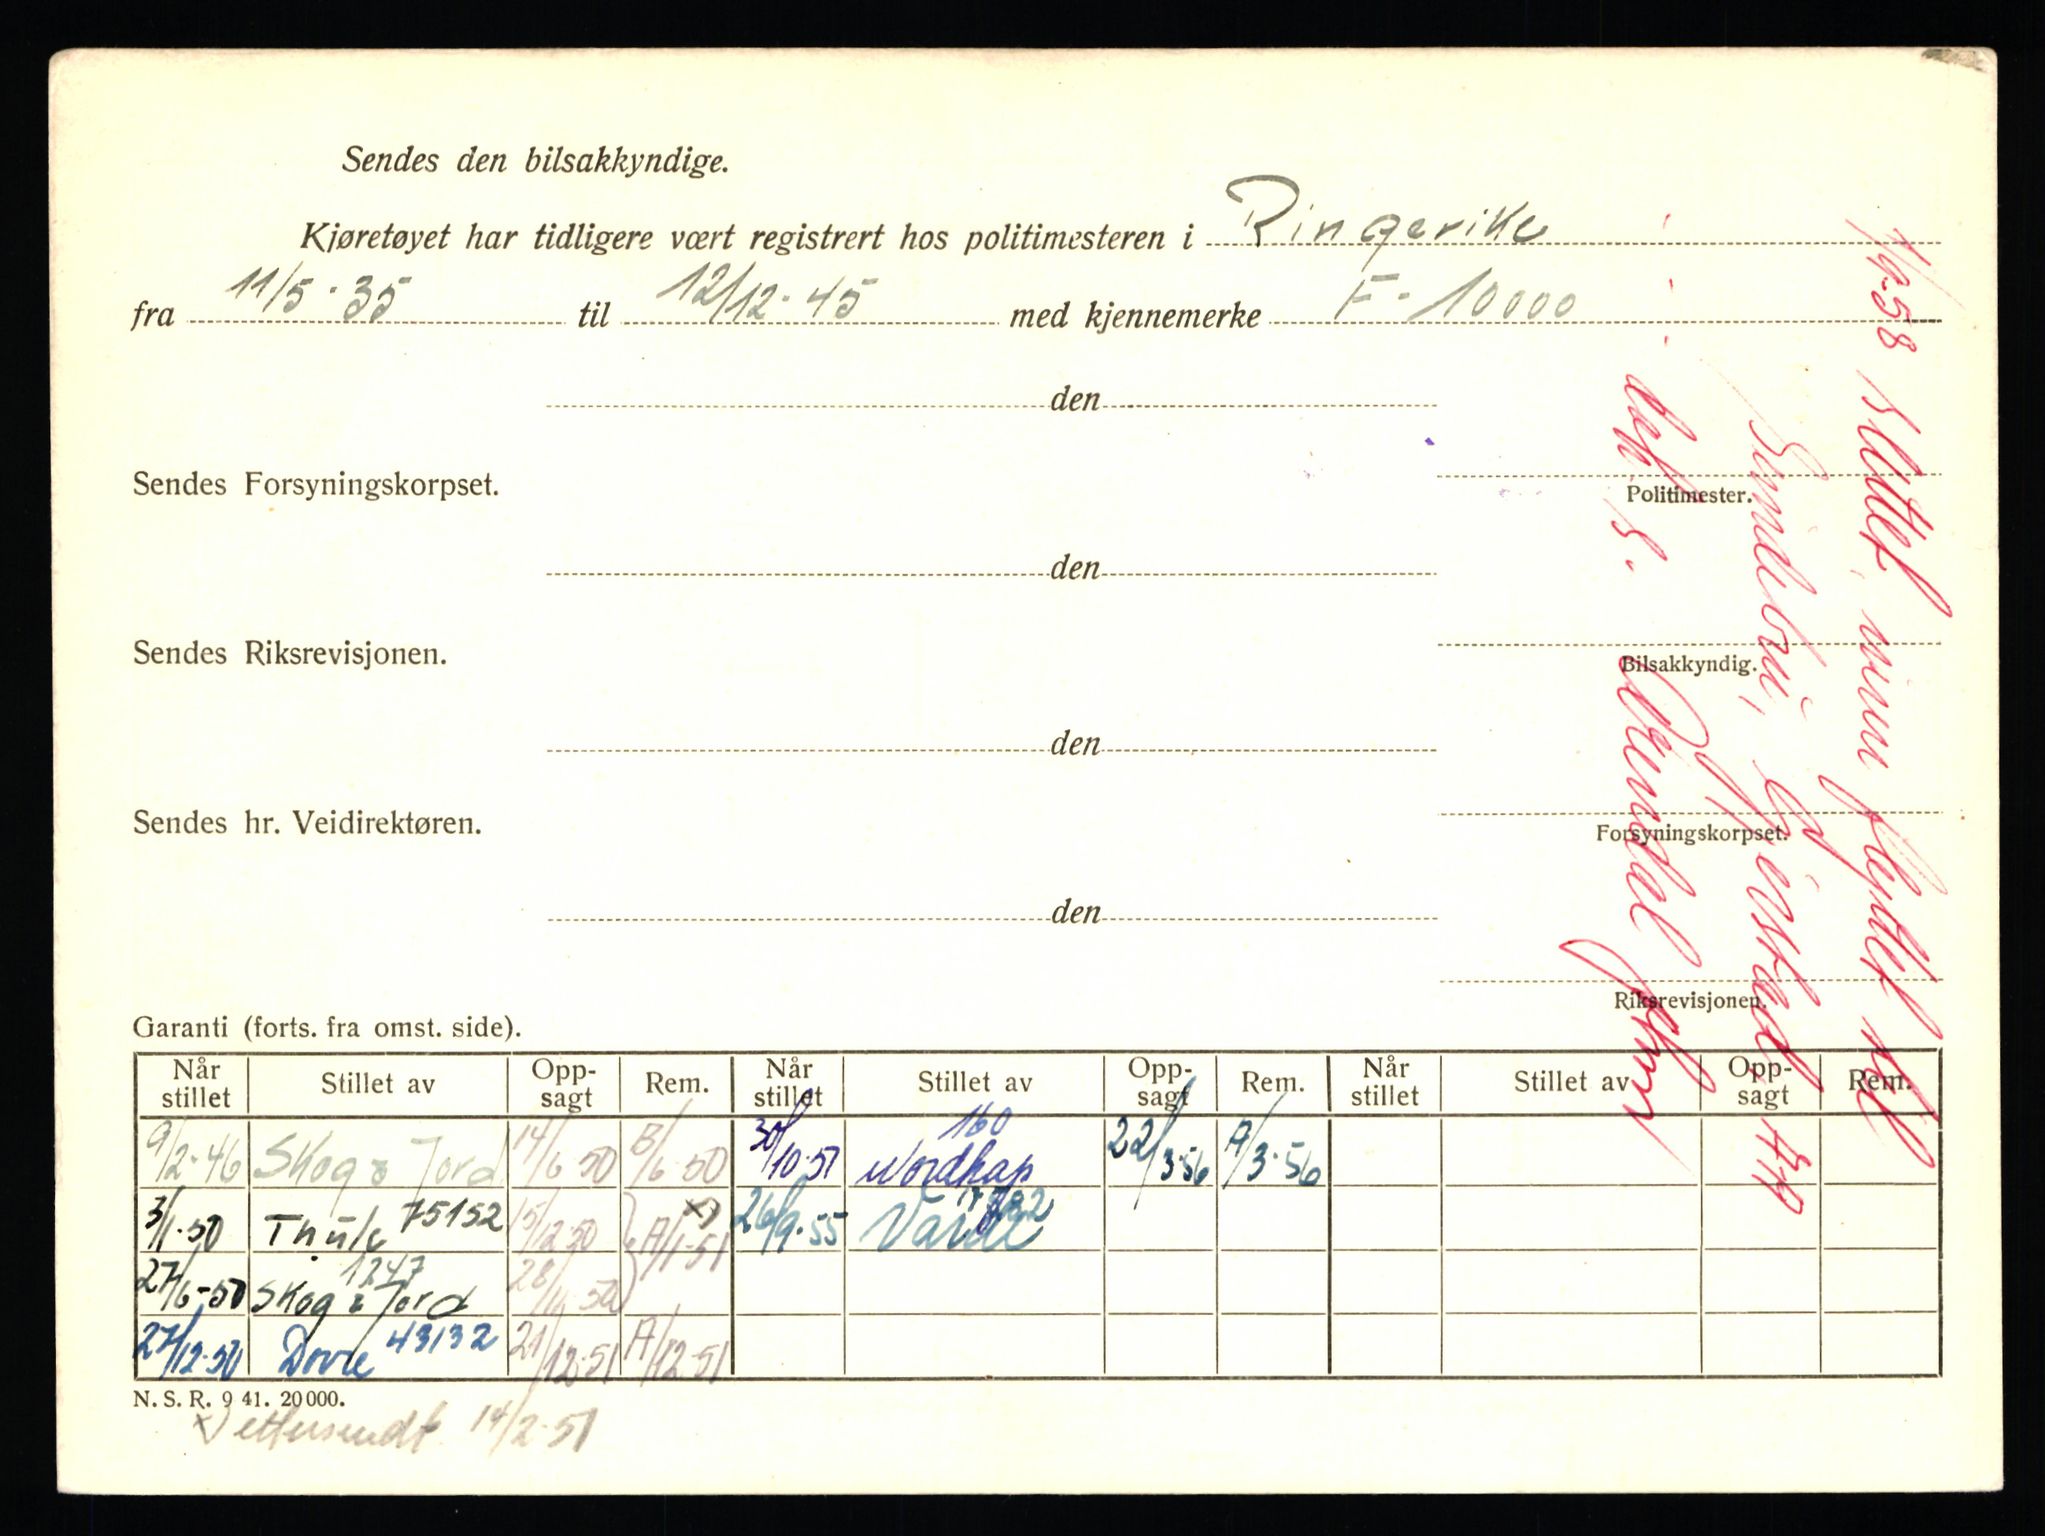 Sendes den bilsakkyndige.
Kjøretøyet har tidligere vært registrert hos politimesteren i Ringerike
fra 11/5-35 til 12/12-45 med kjennemerke F-10000
den
Sendes Forsyningskorpset.
Politimester.
den
Sendes Riksrevisjonen.
Bilsakkyndig.
den
Sendes hr. Veidirektøren.
Forsyningskorpset.
den
Riksrevisjonen.
Garanti (forts. fra omst. side).
Når stillet Stillet av Opp-sagt Rem. Når stillet Stillet av Opp-sagt Rem. Når stillet Stillet av Opp-sagt Rem.
9/2-46 Skog & Jord 14/6 50 B/6 50 30/10-51 160 Nordkap 22/3-56 A/3-56
3/1-50 Thule 75152 15/12 50 A/1-51 x) 26/9-55 Varde
27/6-50 1247 Skog & Jord 28/11-50
27/12-50 Dovre 43132 21/12-51 A/12-51
N. S. R. 9 41. 20 000.
x) ettersendt 14/2-51
58 slettet, flyttet til